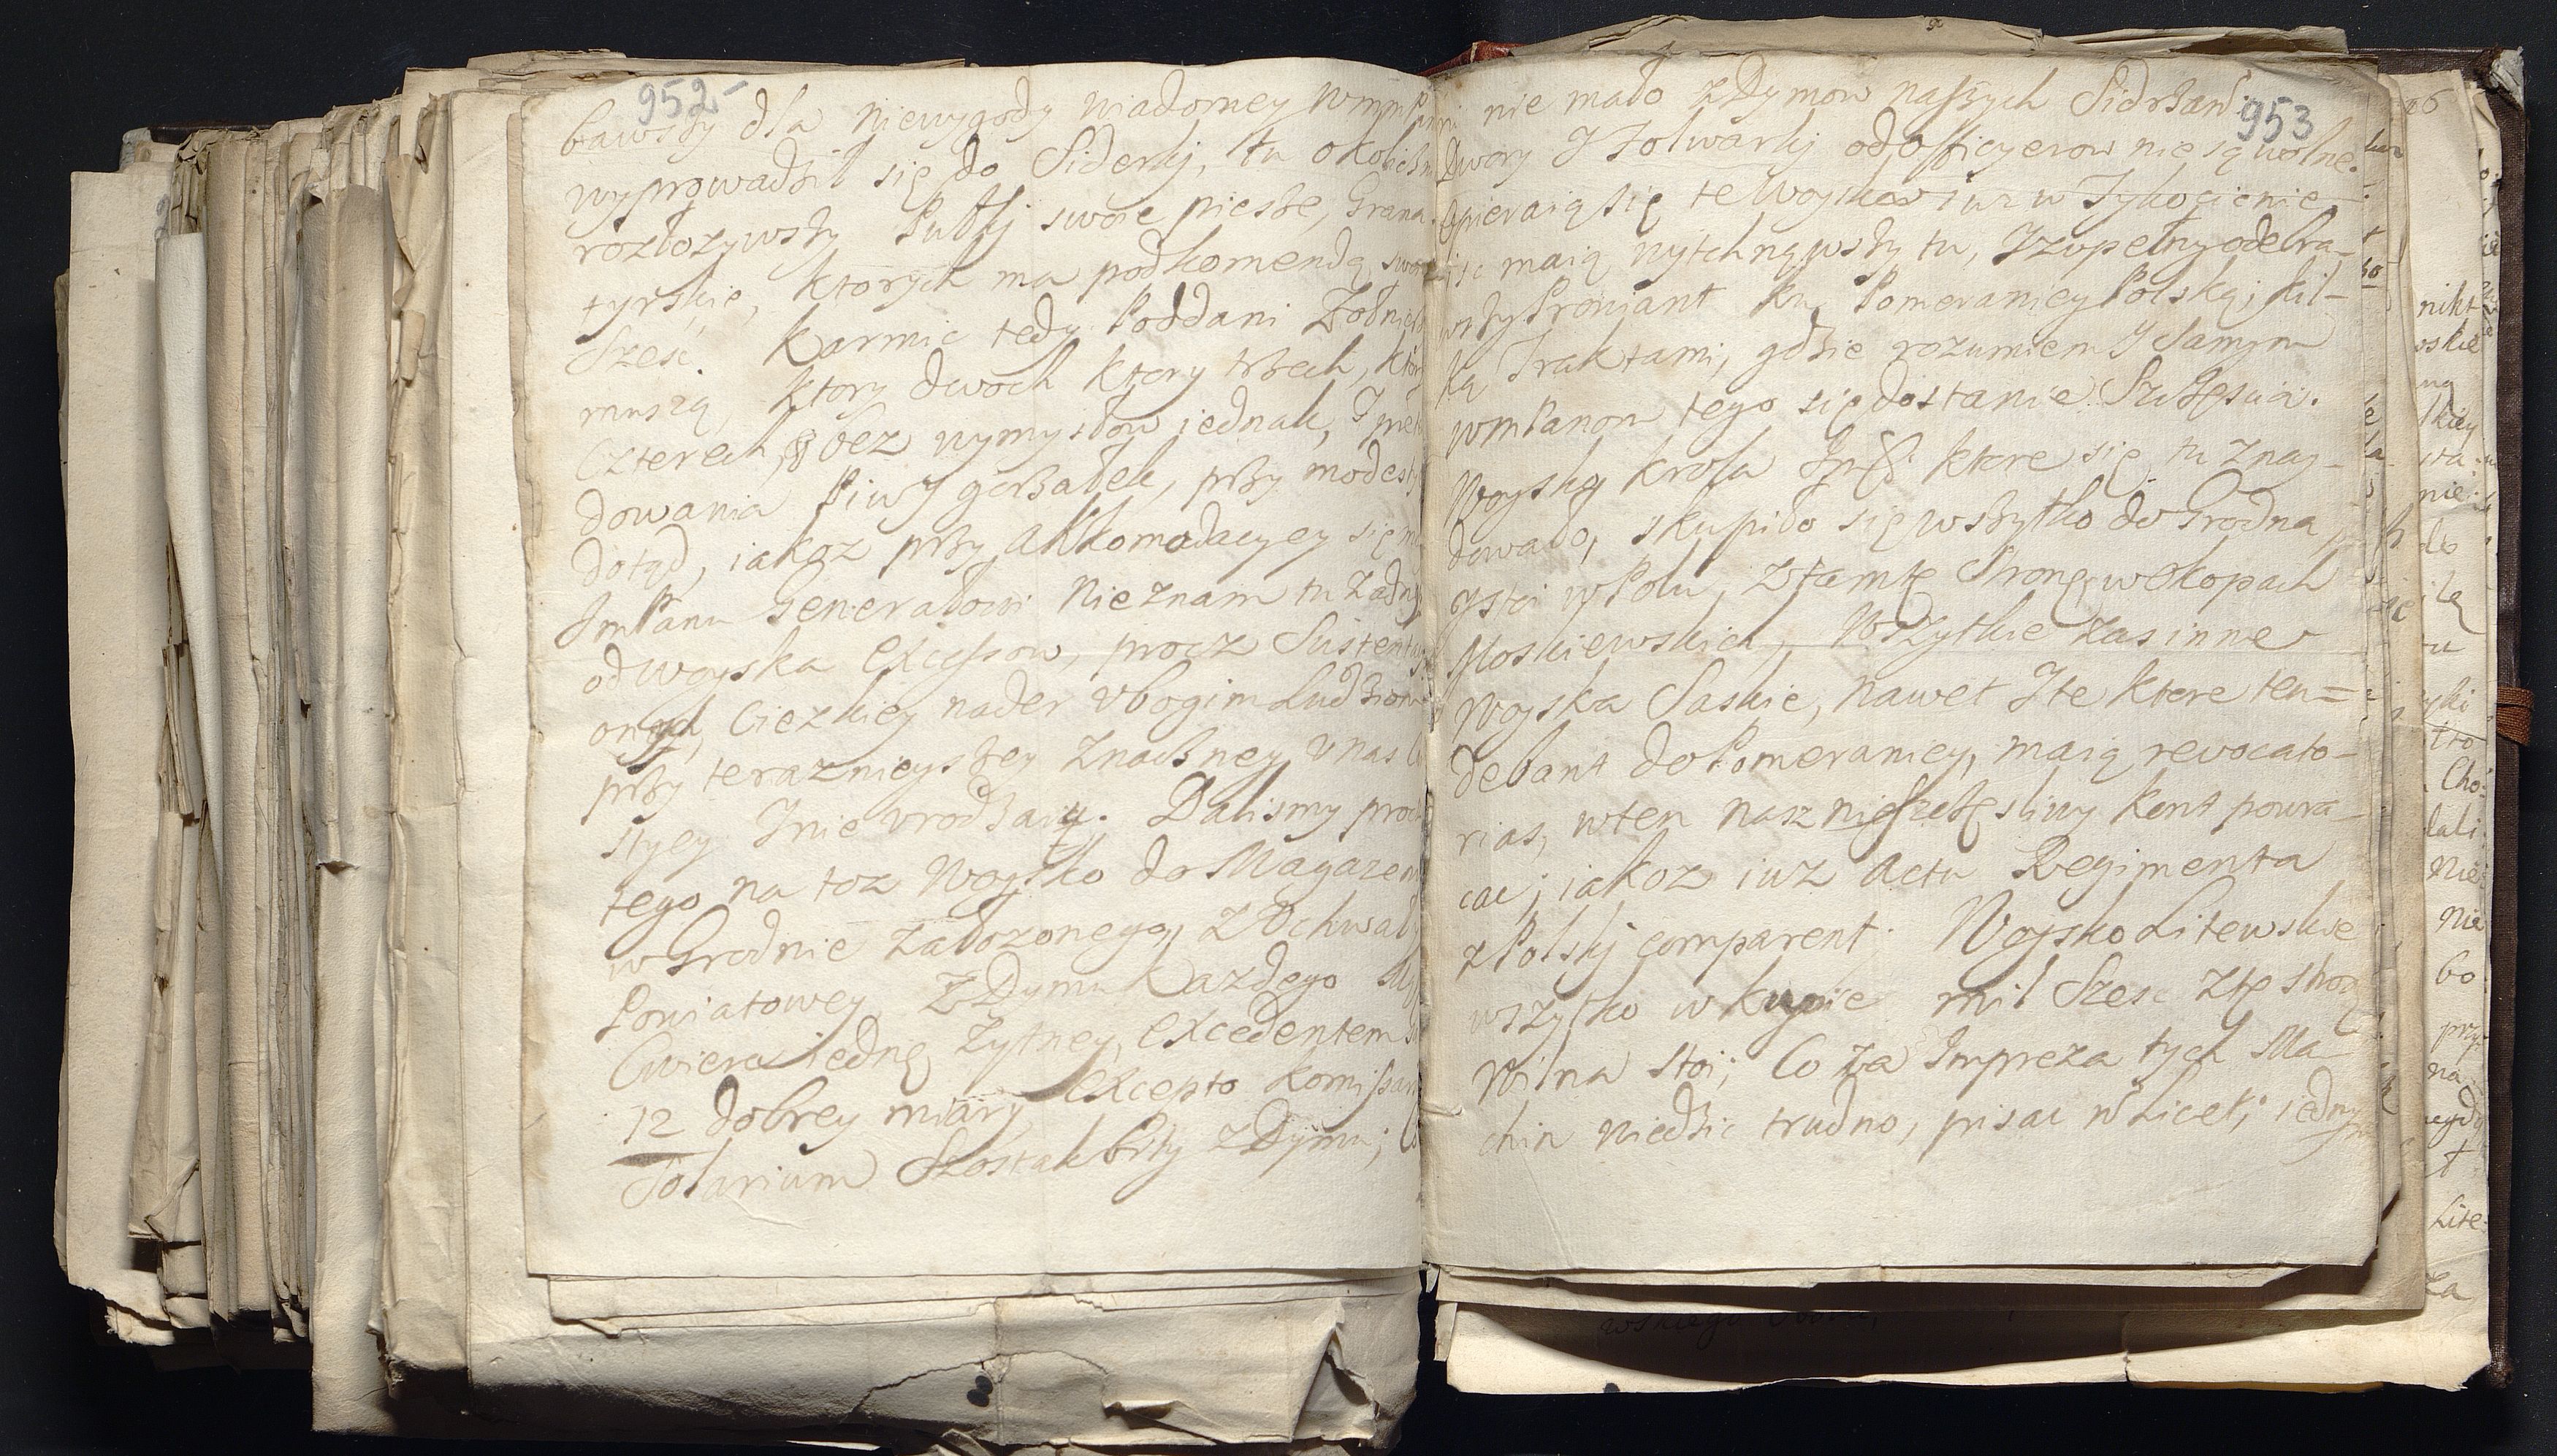 952
bawszy dla niewygody wiadomey Wmm
wyprowadźił się do Siderkj, tu okolicz
rozłozywszy Pułkj swoie piesze, Grana
tyrskie, ktorych ma pod komendą swo
Sześć. Karmic tedy Poddani Zołnie
muszą, ktory dwoch ktory trzech, któr
Czterech, bez wymysłow iednak, J pre
dowania Piwy gorzałek, przy modest
dotąd, iakoz przy akkomodacyey się
JmPanu Generałowi nieznam tu zadny
od woyska excessow, procz Sustenta
onych, Ciezkiey nader vbogim Ludziom
przy teraznieyszey znaczney v nas
styey J nie vrodzaiu. Dalismy procz
tego na toz Woysko do Magazen
w Grodnie załozonego, z Vchwały
Powiatowey, z Dymu kazdego
Cwierc iedną, Zytney, excedentem
12 dobrey miary excepto komissar
Solarium Szostak bity z Dymu;
953
nie mało z Dymow naszych Sidrzan
Dwory J Folwarkj od officyerow nie są wolne.
Opieraią się te Woyska iuz w Tykocinie
isc maią wytchnąwszy tu, J zupełny odebra-
wszy Prowiant ku Pomeraniey Polską, kil-
ką Traktami, gdzie rozumiem J Samym
WmPanom tego się dostanie Szczęscia.
Woysko krola Jm ktore się tu znay-
dowało, skupiło się wszytko do Grodna,
y stoi w Polu, z tamtę Stronę w okopach
Moskiewskich, Wszytkie zas inne
Woyska Saskie, nawet J te ktore ten=
debant do Pomeraniey, maią revocato-
rias, w ten nasz nieszczęsliwy kont powra-
cac; iakoz iuz actu Regimenta
z Polskj comparent. Woysko Litewskie
wszytko w kupie mil Szesc z tę stronę
Wilna stoi; Co za Impreza tych Ma-
chin niedzic trudno, pisac n̄ Licet; iedny